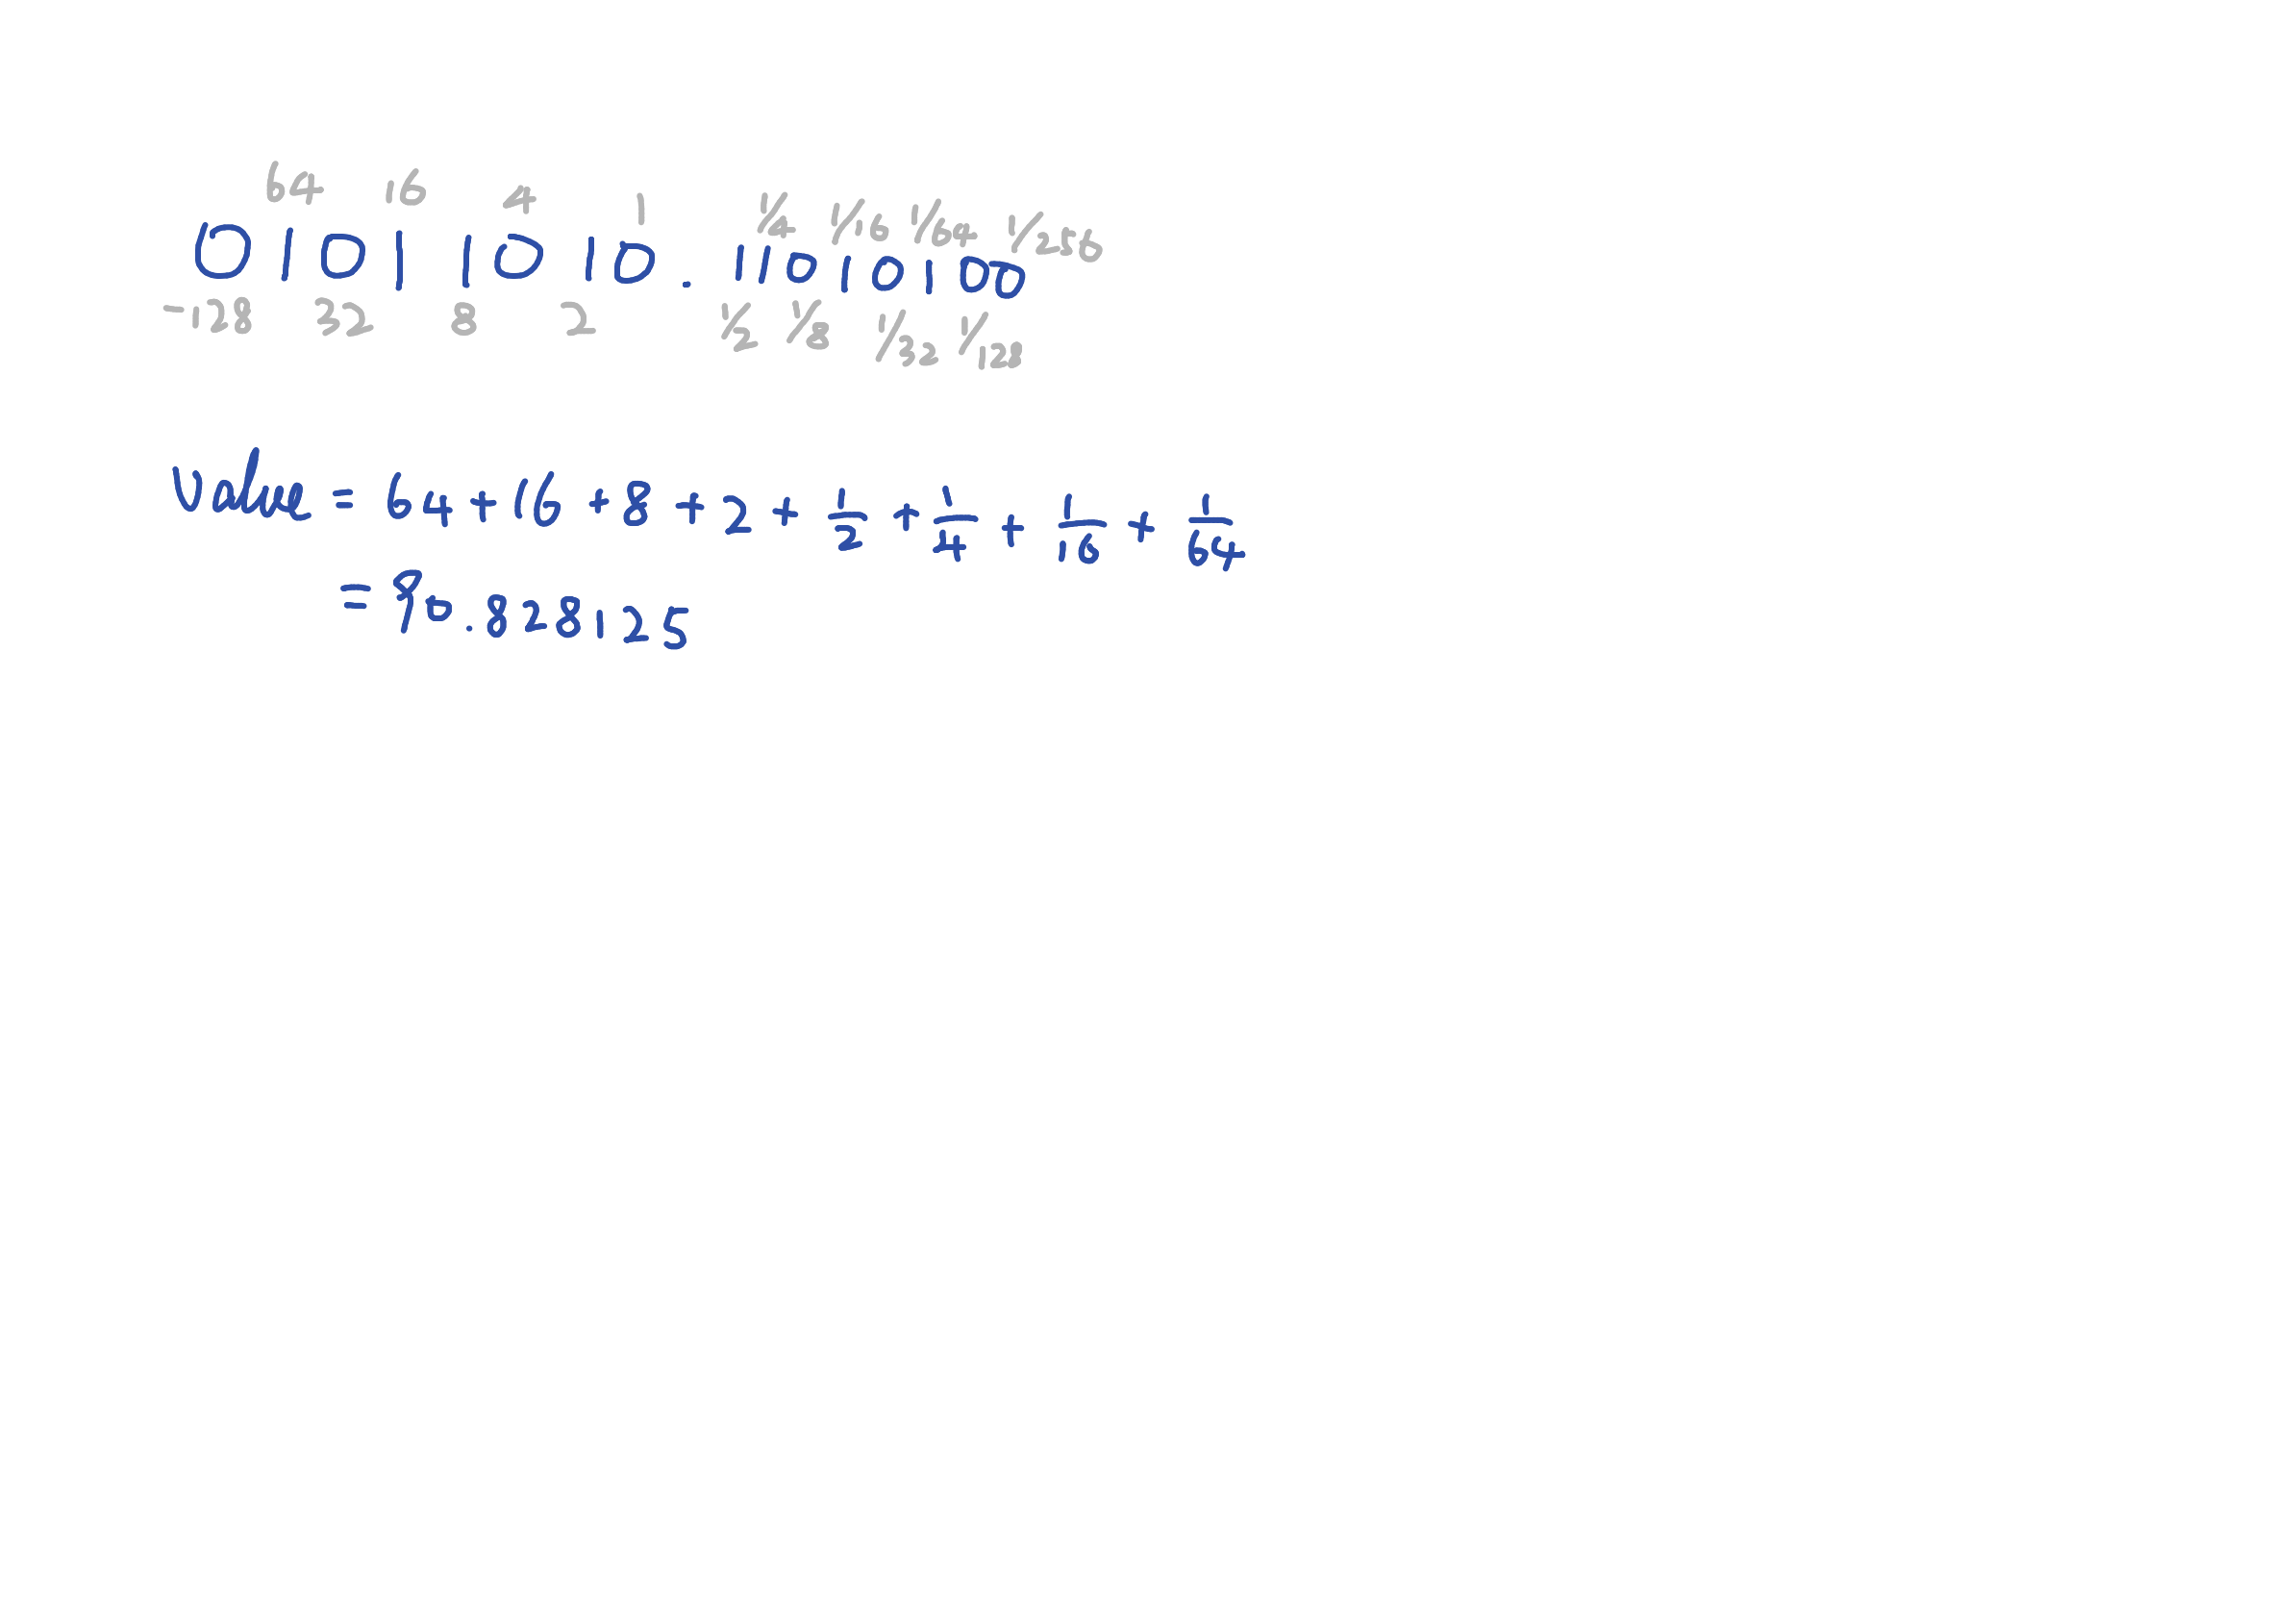 64 16 4 1 1/4 1/16 1/64 1/256
01011010.11010100
-128 32 8 2 1/2 1/8 1/32 1/128
Value = 64+16+8+2+1/2+1/4+1/16+1/64
=90.828125